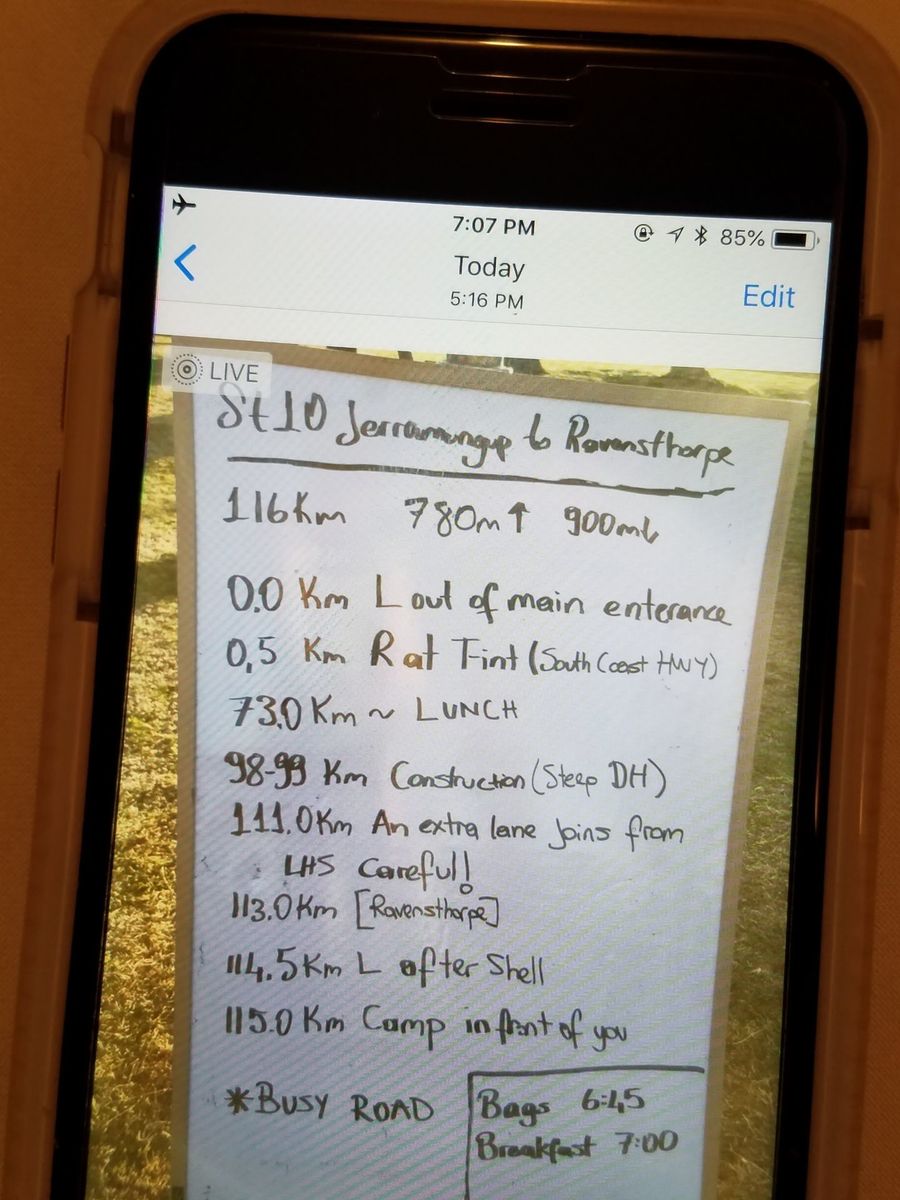 7:07 PM
85%
Today
5:16 PM
Edit
LIVE
St10 Jerramungup to Ravensthorpe
116Km 780m↑ 900m↓
0.0 Km L out of main enterance
0,5 Km R at T-int (South Coast HWY)
73.0 Km ~ LUNCH
98-99 Km Construction (Steep DH)
111.0Km An extra lane joins from
LHS Careful!
113.0Km [Ravensthorpe]
114.5Km L after Shell
115.0 Km Camp in front of you
*BUSY ROAD
Bags 6:45
Breakfast 7:00